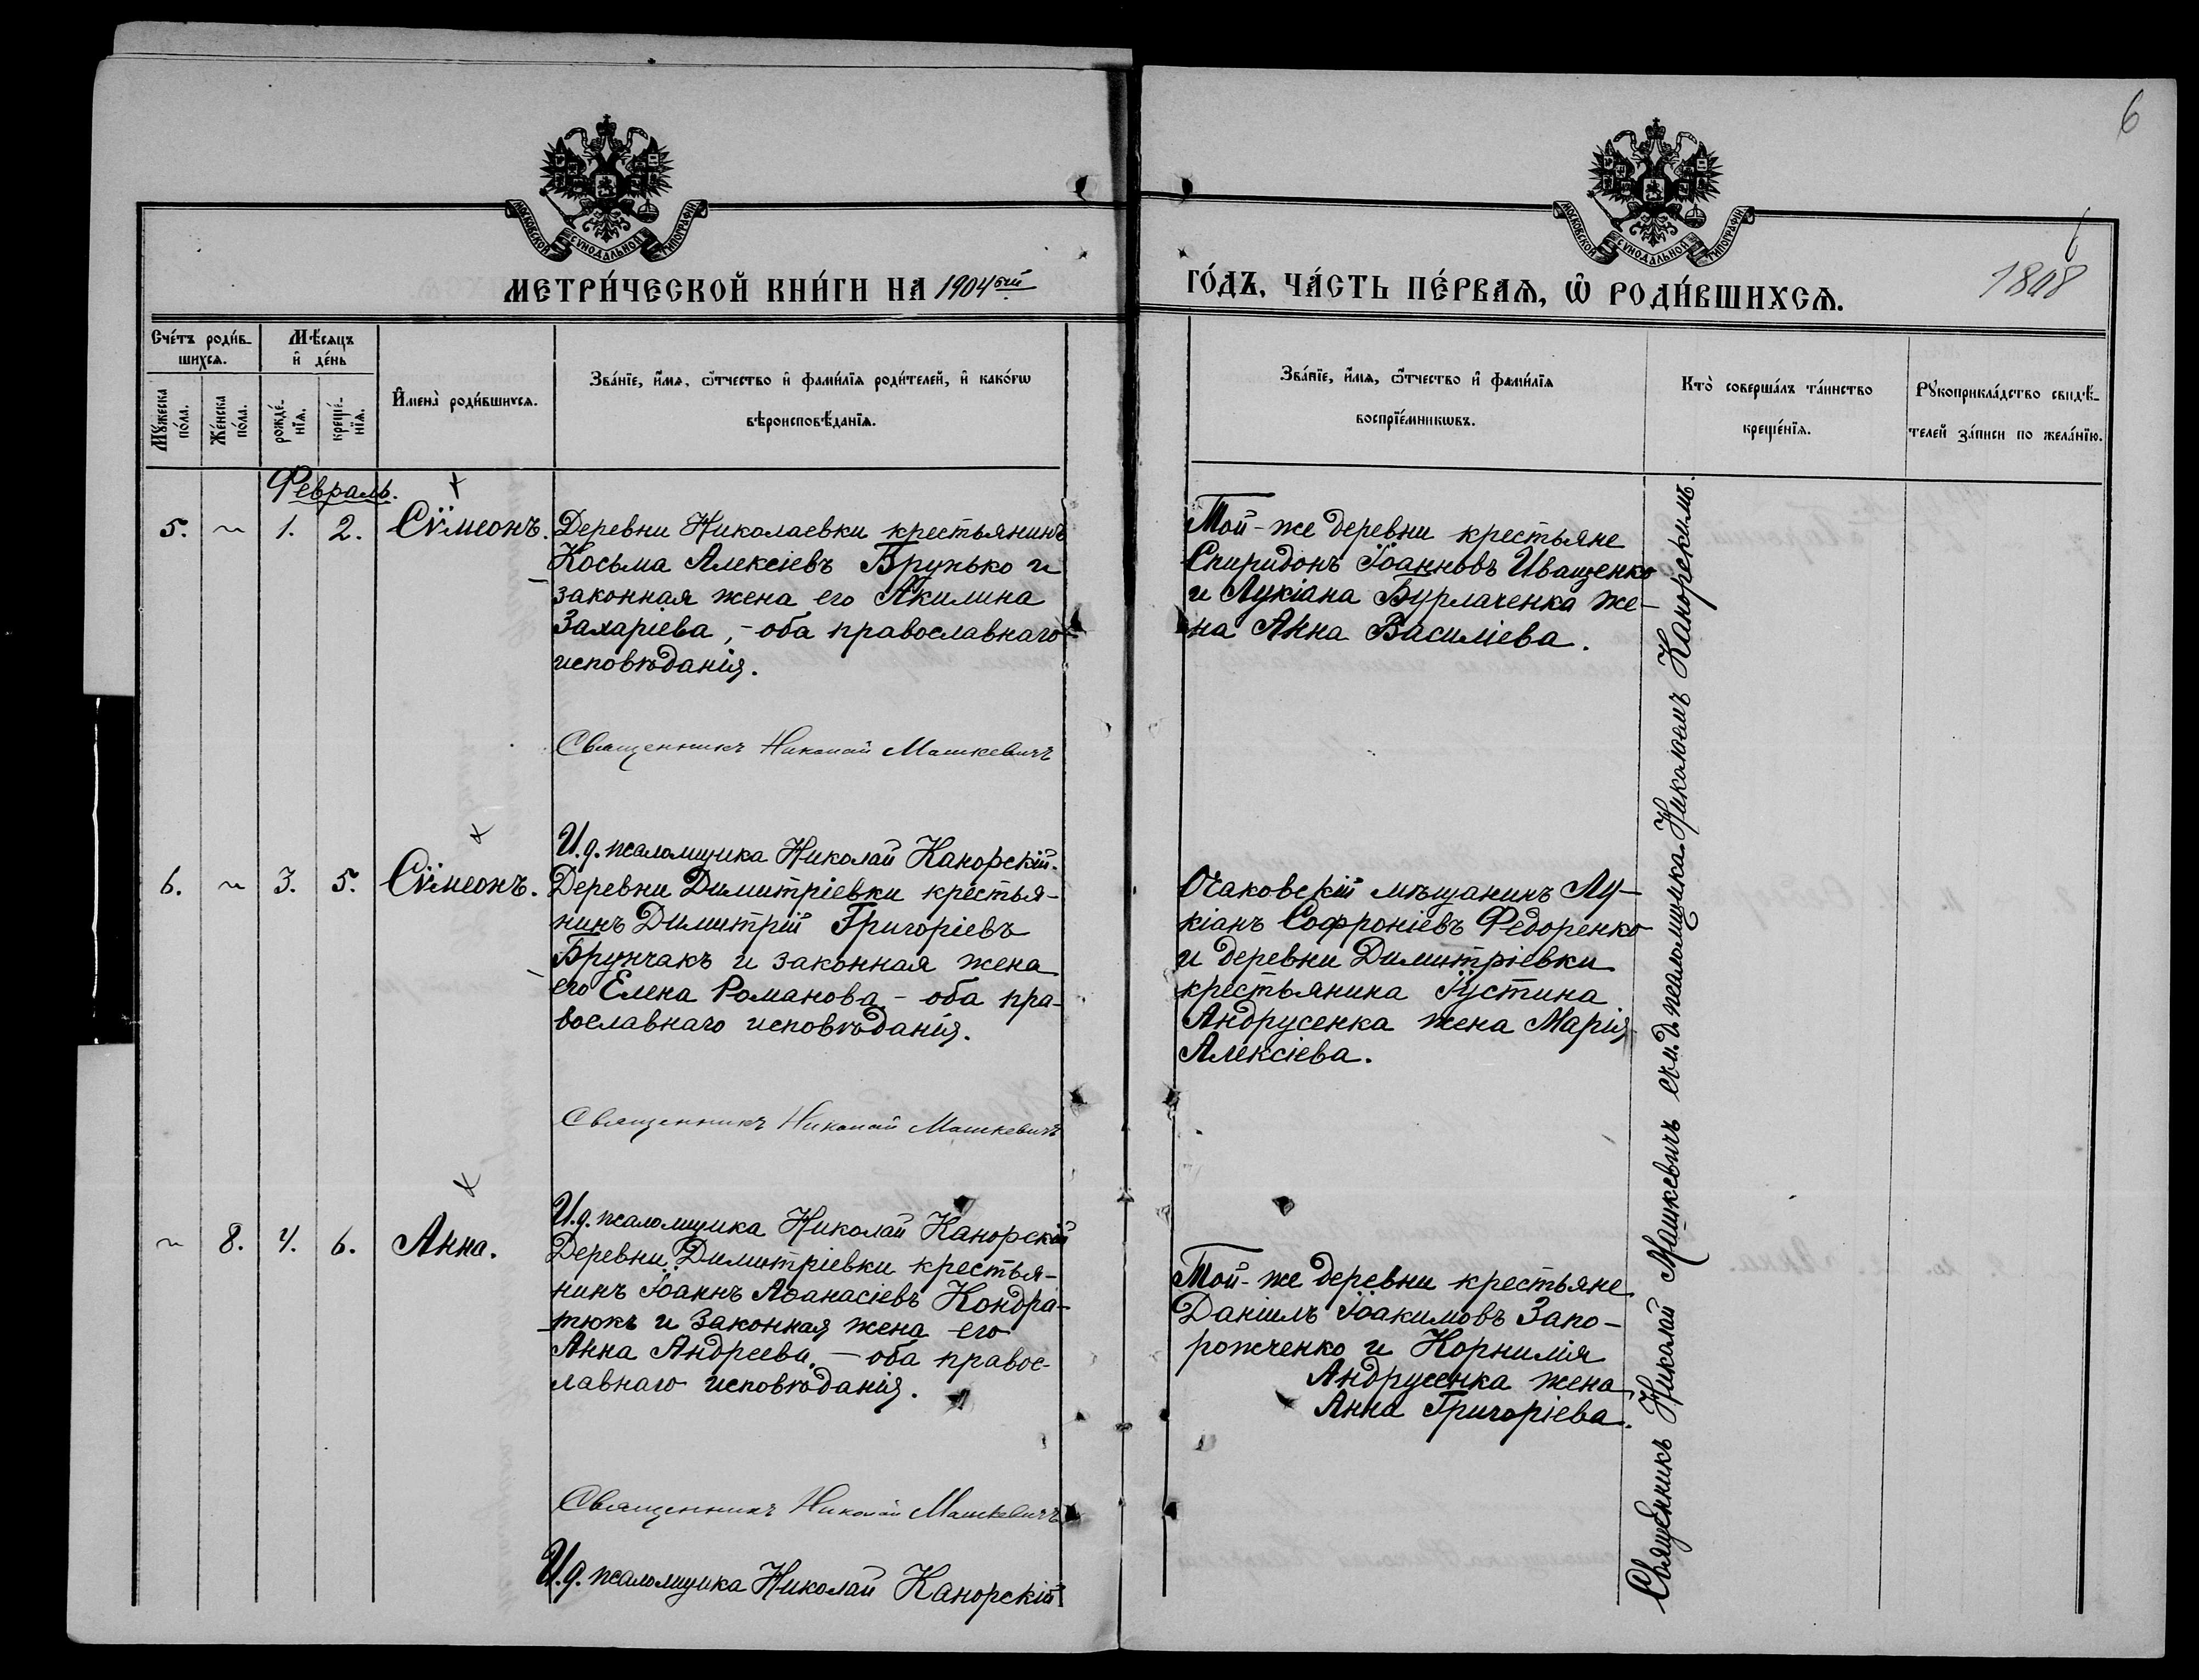 6
МОСКОВСКОЙ СУНОДАЛЬНОЙ ТИПОГРАФІИ
МОСКОВСКОЙ СУНОДАЛЬНОЙ ТИПОГРАФІИ
6
1808
МЕТРИ́ЧЕСКОЙ КНИ́ГИ НА 1904ый
ГО́ДЪ, ЧА́СТЬ ПЕ́РВАЯ, Ѽ РОДИ́ВШИХСЯ.
Сче́тъ роди́в-
шихся.
Мꙋжеска по́ла.
Же́нска по́ла.
Мѣ́сяцъ
и де́нь
рожде́-
нїя.
креще́-
нїя.
Имена̀ роди́вшихся.
Зва́нїе, и́мя, ѻ́тчество и фами́лїя роди́телей, и како́гѡ
вѣроисповѣ́данїя.
Зва́нїе, и́мя, ѻ́тчество и фами́лїя
воспрїе́мникѡвъ.
Кто̀ соверша́лъ та́инство
креще́нїя.
Рꙋкоприкла́дство свидѣ́-
телей за́писи по жела́нїю.
Февраль.
5. ~ 1. 2. Сѵмеонъ.
Деревни Николаевки крестьянинъ
Косьма Алексіевъ Брунько и
законная жена его Акилина
Захаріева, - оба православнаго
исповѣданія.
Священникъ Николай Машкевичъ
И.д. псаломщика Николай Канорскій.
Той-же деревни крестьяне
Спиридонъ Іоанновъ Иващенко
и Лукіана Бурлаченка же-
на Анна Василіева.
6. ~ 3. 5. Сѵмеонъ.
Деревни Димитріевки крестья-
нинъ Димитрій Григоріевъ
Брунчакъ и законная жена
его Елена Романова - оба пра-
вославнаго исповѣданія.
Священникъ Николай Машкевичъ
И.д. псаломщика Николай Канорскій
Очаковскій мѣщанинъ Лу-
кіанъ Софроніевъ Федоренко
и деревни Димитріевки
крестьянина Іустина
Андрусенка жена Марія
Алексіева.
~ 8. 4. 6. Анна.
Деревни Димитріевки крестья-
нинъ Іоаннъ Аѳанасіевъ Кондра-
тюкъ и законная жена его
Анна Андреева. - оба правос-
лавнаго исповѣданія.
Священникъ Николай Машкевичъ
И.д. псаломщика Николай Канорскій
Той-же деревни крестьяне
Даніилъ Іоакимовъ Запо-
рожченко и Корнилія
Андрусенка жена
Анна Григоріева.
Священникъ Николай Машкевичъ съ и.д. псаломщика Николаемъ Канорскимъ.